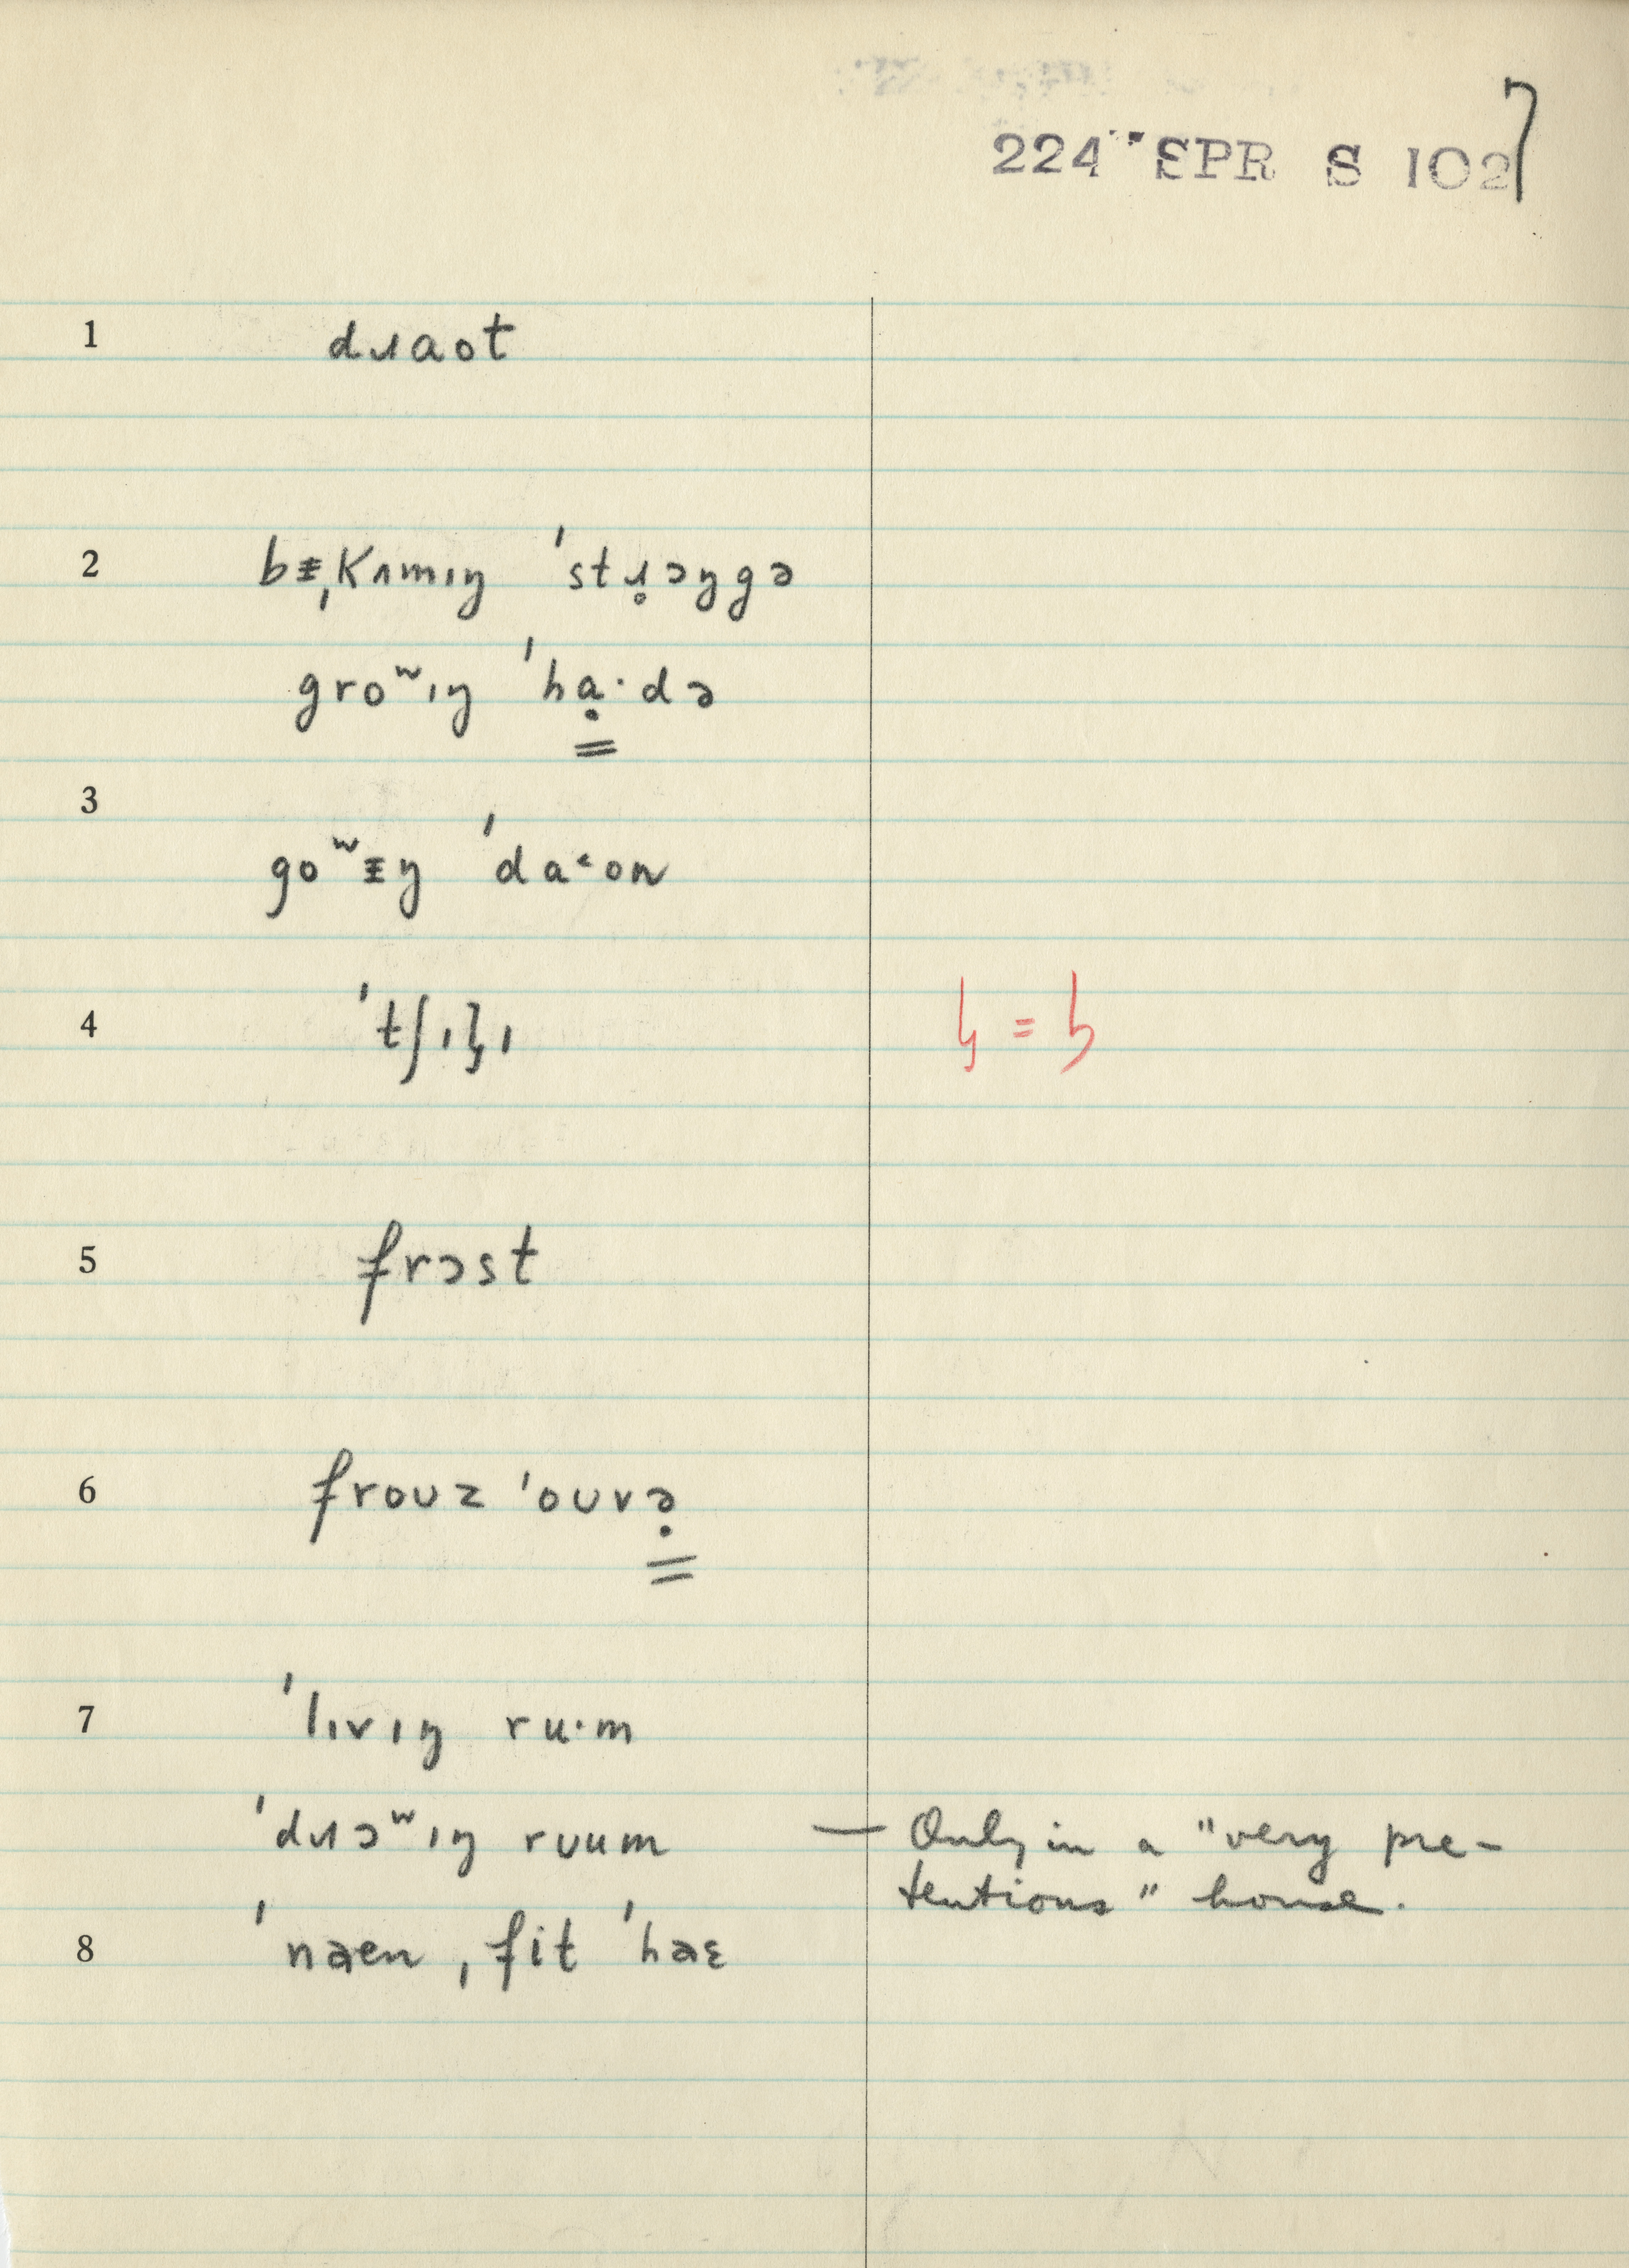 224 SPR S 102 7
1 dɹaot
2 bᵻˌkʌmɪŋ ˈstɹ̥ɔŋgə
groʷɪŋ ˈhạ·də
3
goʷᵻŋ ˈda˂on
4 ˈtʃɪlˌɪ = ɧ
5 frɔst
6 froʊz ˈoʊvə̣
7 ˈlɪvɪŋ ru·m
ˈdɹɔʷɪŋ rʊum — Only in a "very pre-
tentious" house.
8 ˈnaen ˌfit ˈhaɛ